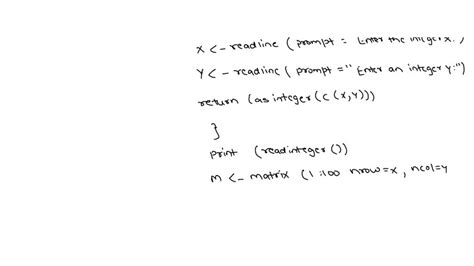 X <- readline ( prompt = Enter the integer x:,
Y <- readline ( prompt =" Enter an integer y:")
return (as integer (c (x,y)))
}
print (readinteger ())
M <- matrix (1 :100 nrow=x, ncol=y